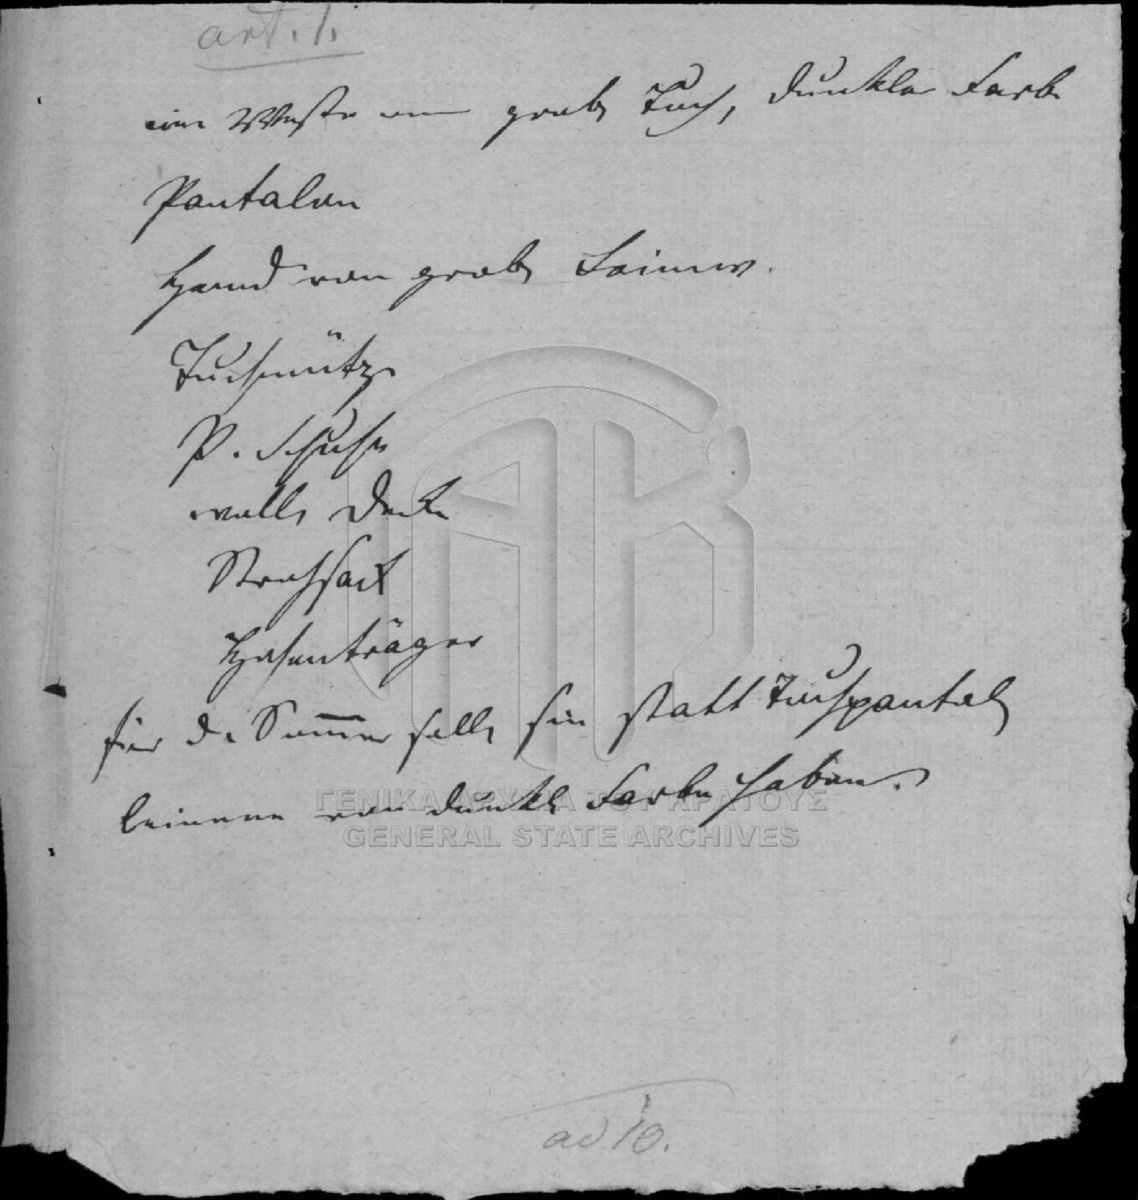 art. 1.
eine Weste von grob Tuch, dunkler Farbe
Pantalon
Hemd von grob Leinw.
Tuchmütze
P. Schuhe
woll. Decke
Strohsack
Hosenträger
für de Sommer soll sie statt Tuchpantal
leinene von dunkl Farbe haben.
ΓΕΝΙΚΑ ΑΡΧΕΙΑ ΤΟΥ ΚΡΑΤΟΥΣ
GENERAL STATE ARCHIVES
ad 10.